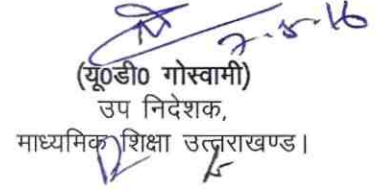 7-5-16
(यू0डी0 गोस्वामी)
उप निदेशक,
माध्यमिक शिक्षा उत्तराखण्ड।